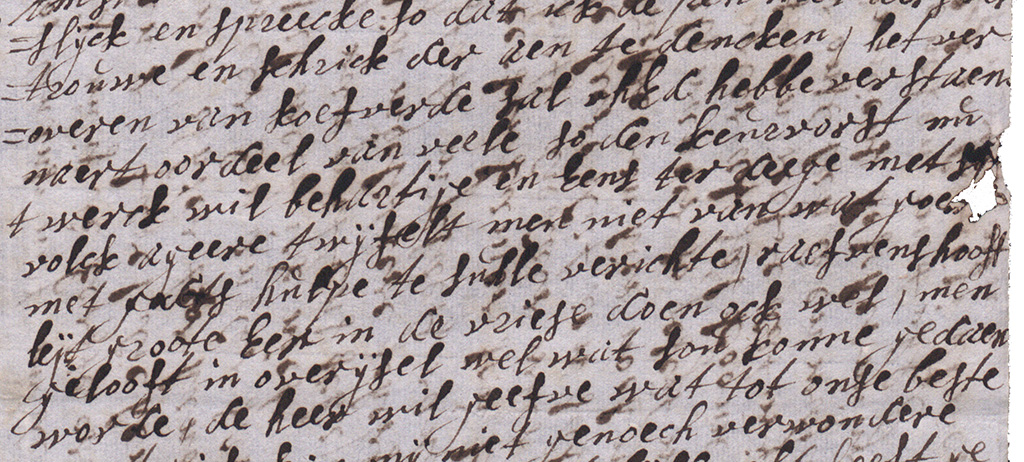 =slyck en spreecke so dat ick de
=trouwe en schrick der aen te dencken, het ver
=overen van koefverde sal uhEd hebbe verstaen
naert oordeel van veele so den keurvorst nu
t werck wil behartige en eens ter deege met
volck ageere twyfelt men niet van wat goe
met godts hulpe te sulle verichte, raefvenshooft
leyt groote eer in de vriese doen ock wel, men
gelooft in overysel wel wat sou konne gedaen
worde, de heer wil geefve wat tot onse beste
my niet genoech verwondere